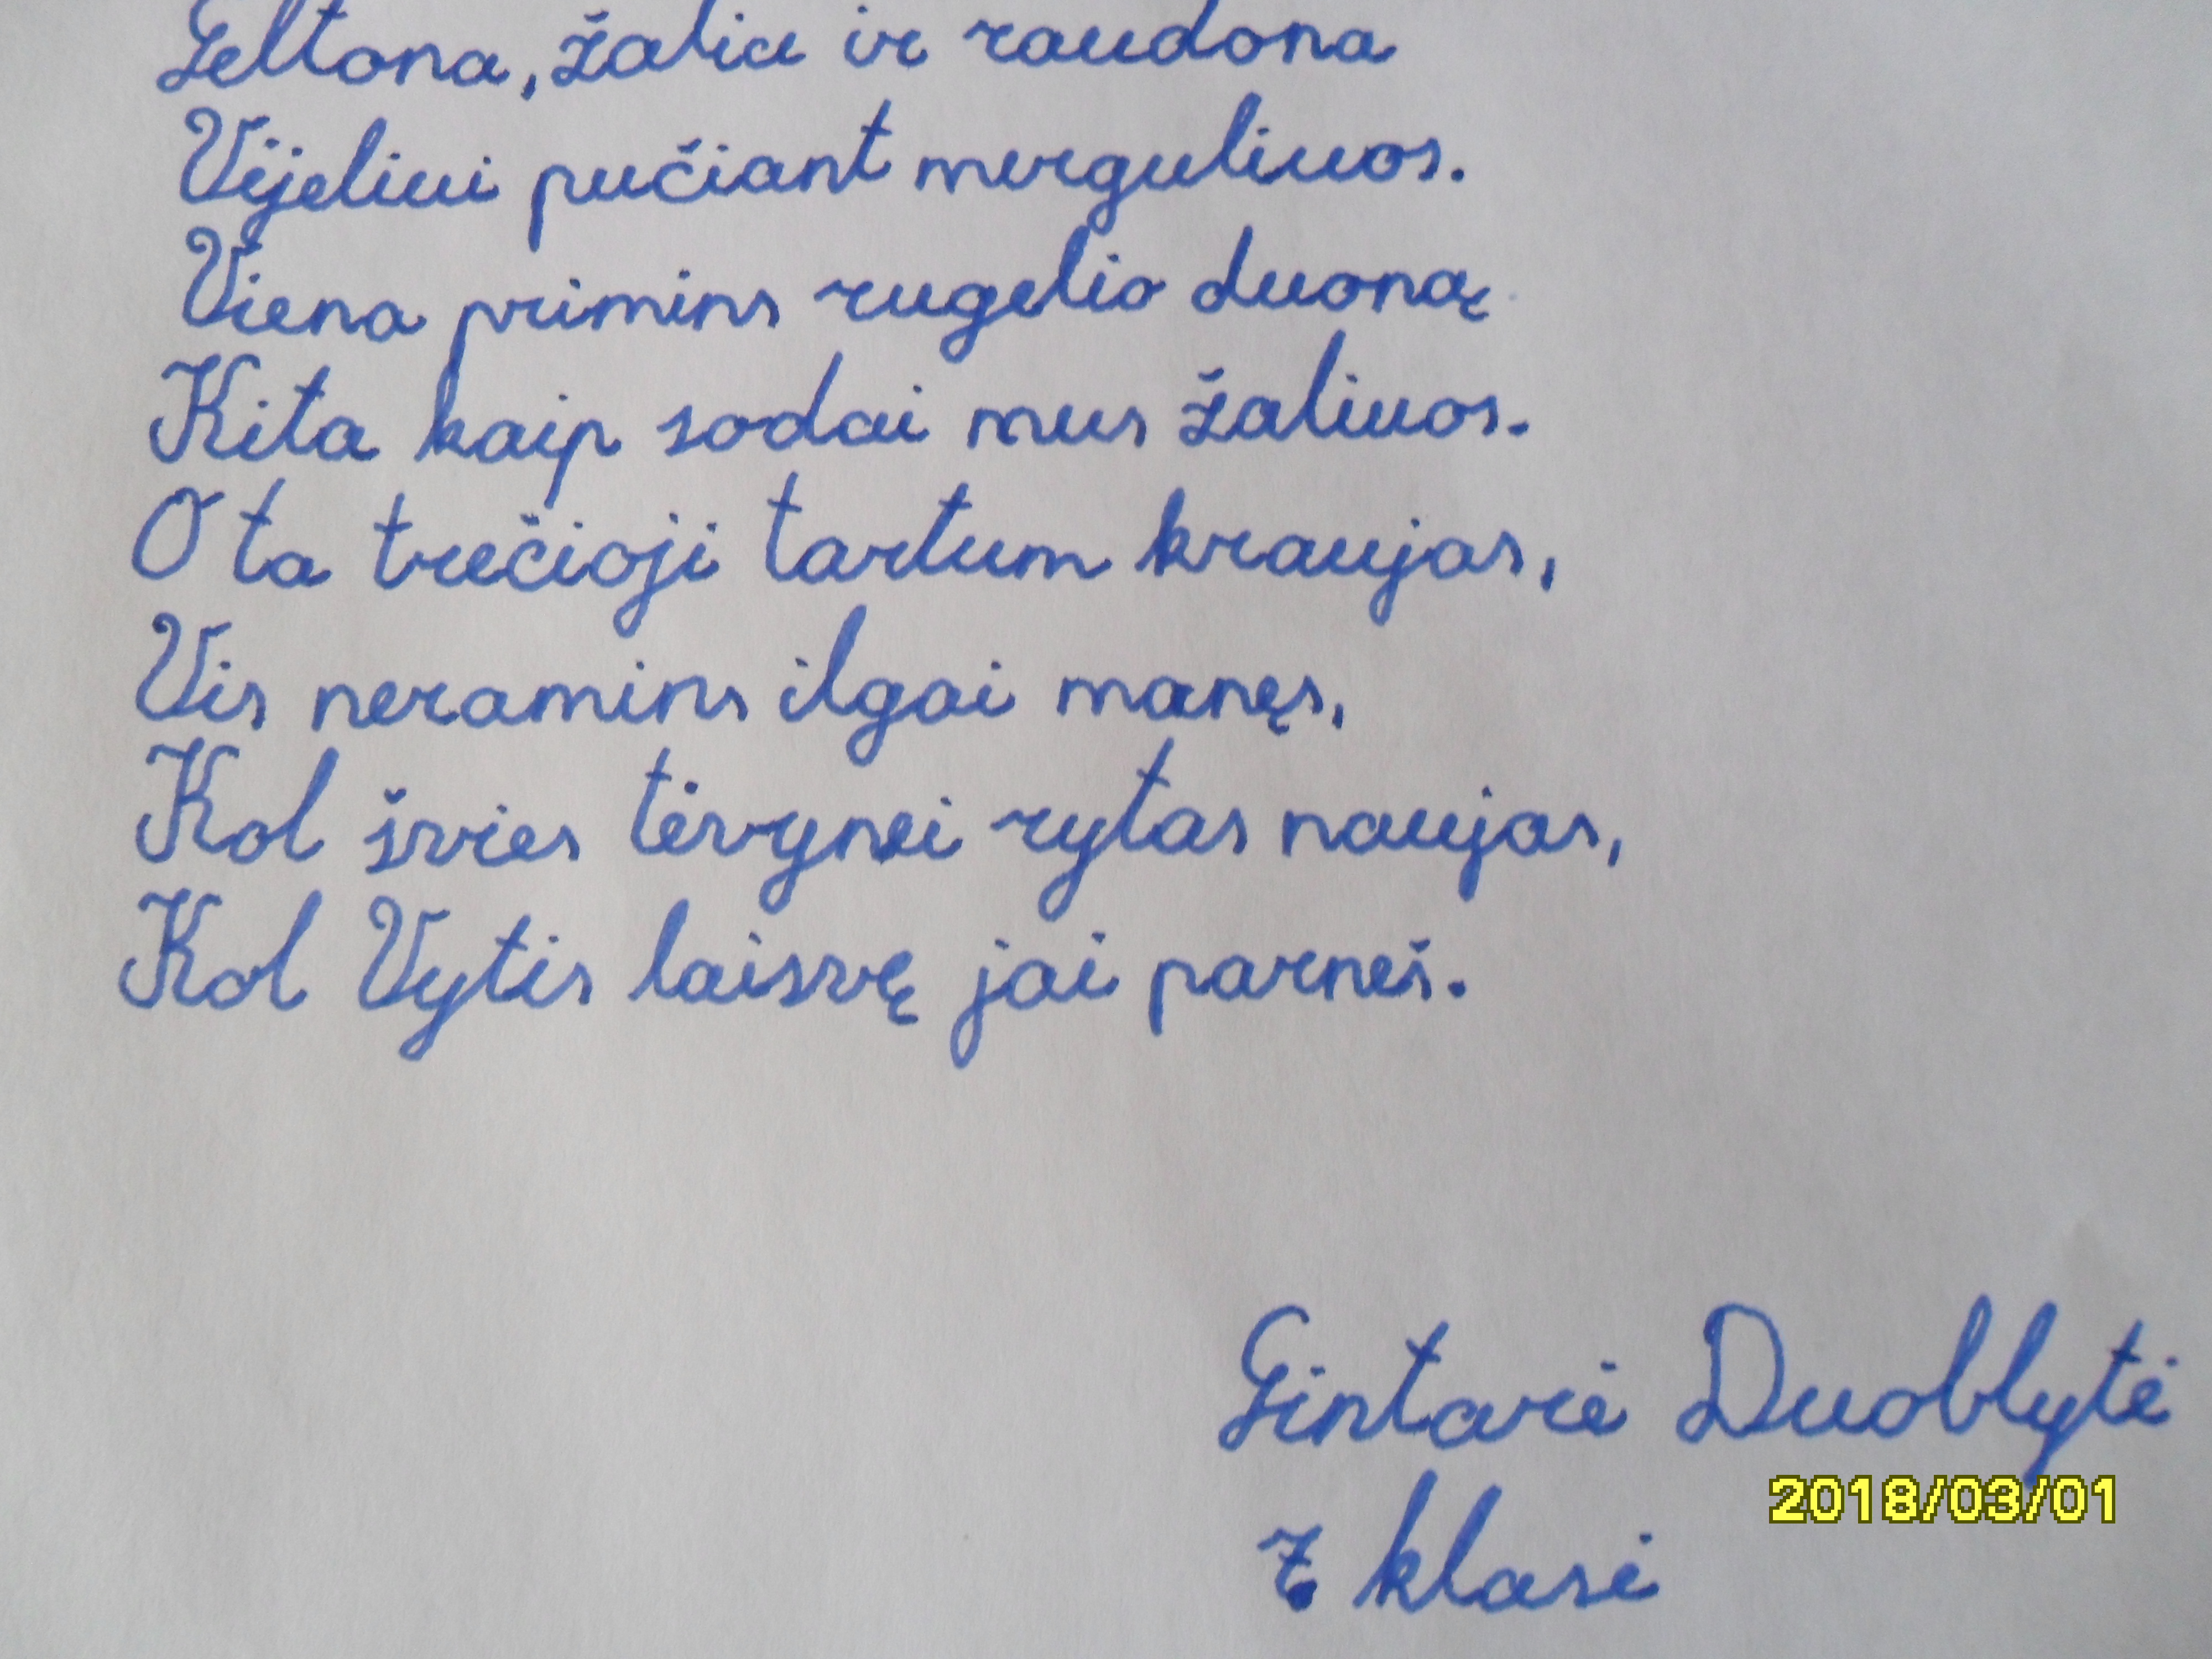 Geltona, žalia ir raudona
Vėjeliui pučiant mirguliuos.
Viena primins rugelio duoną
Kita kaip sodai mus žaliuos.
O ta trečioji tartum kraujas,
Vis neramins ilgai manęs,
Kol švies tėvynei rytas naujas,
Kol Vytis laisvę jai parneš.
Gintarė Duoblytė
2018/03/01
7 klasė